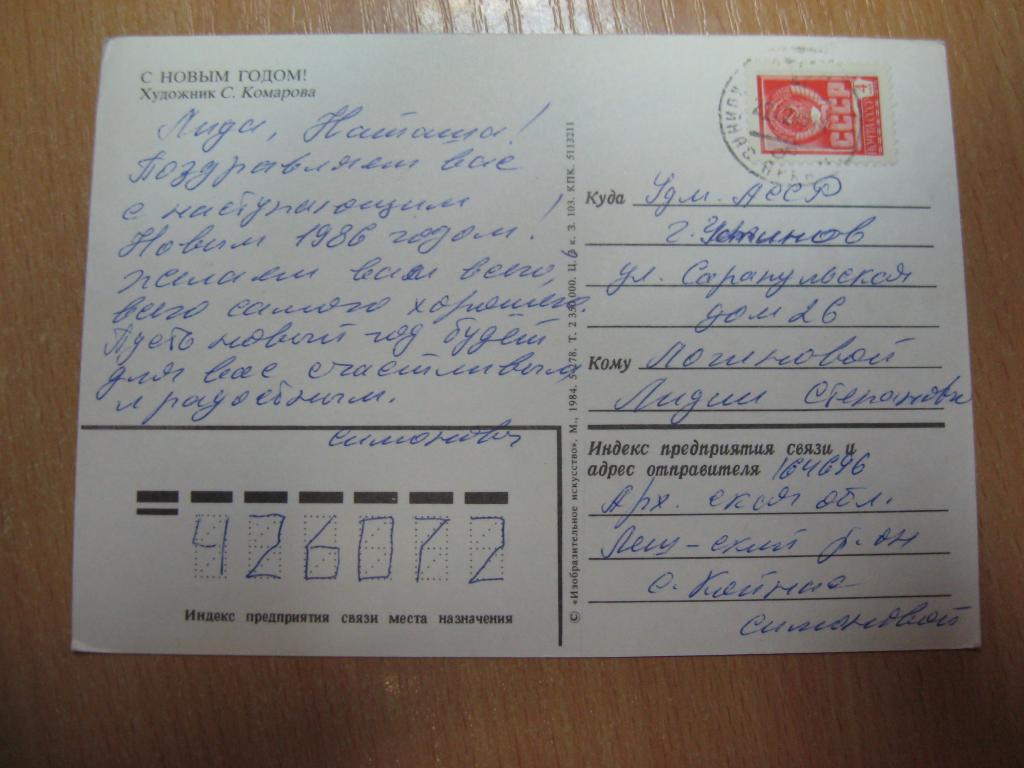 С НОВЫМ ГОДОМ!
Художник С. Комарова
Лида, Наташа!
Поздравляем вас
с наступающим
Новым 1986 годом!
желаем вам всего,
всего самого хорошего,
Пусть новый год будет
для вас счастливым
и радостным.
Симоновы
426072
Индекс предприятия связи места назначения
© «Изобразительное искусство», М., 1984.
З. 103. КПК. 5113211
СССР
4
ПОЧТА
Куда Удм. АССР
г. Устинов
ул. Сарапульская
дом 26
Кому Логиновой
Лидии Степановне
Индекс предприятия связи и
адрес отправителя 164696
Арх. ская обл.
Леш-ский р-он
с. Койнас
Симоновой